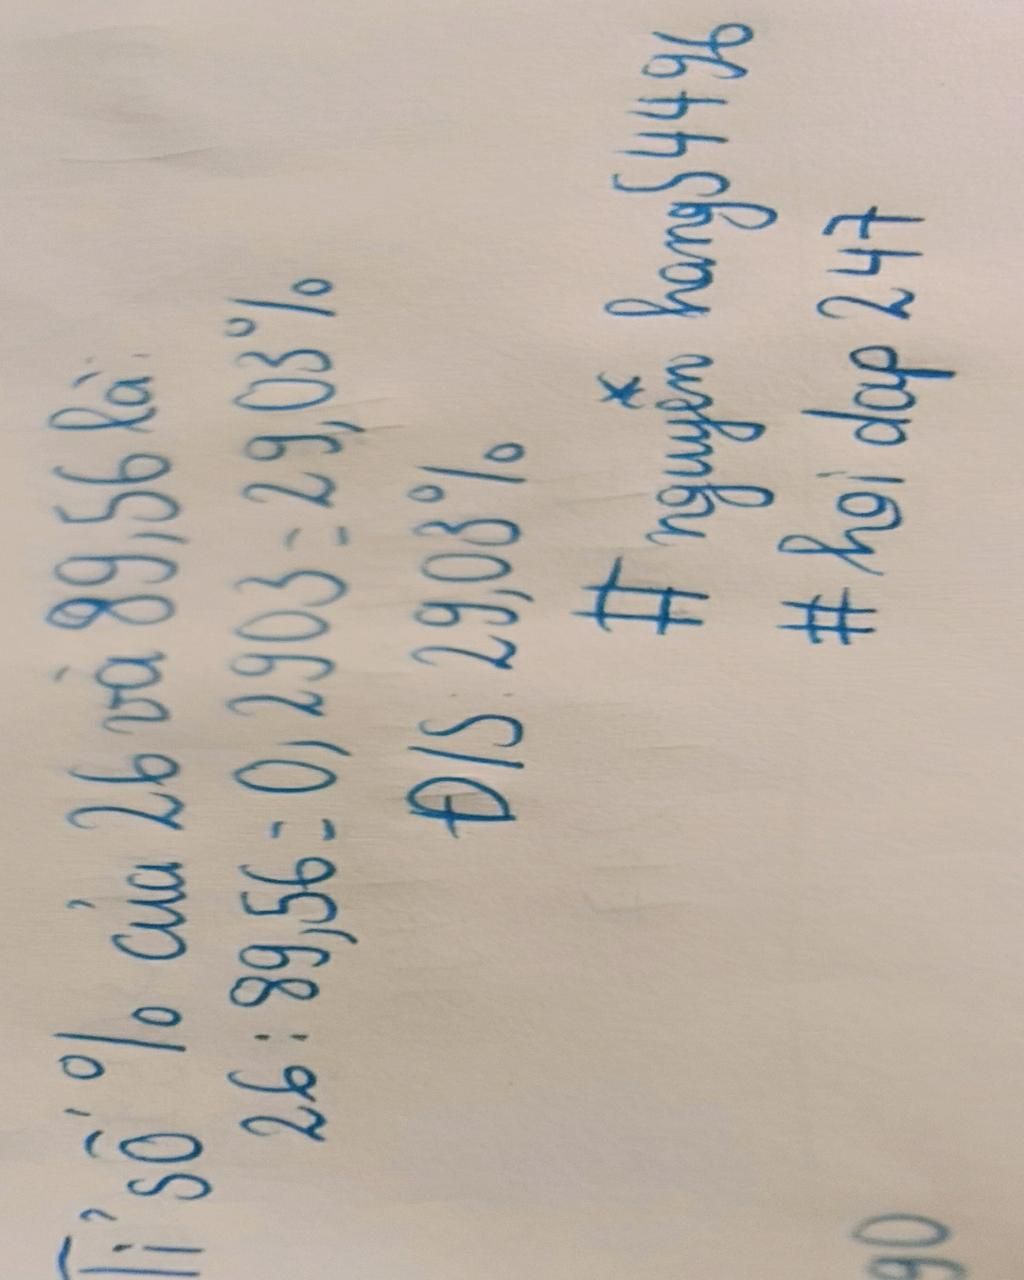 Tỉ số % của 26 và 89,56 là:
26 : 89,56 = 0,2903 = 29,03%
Đ/S : 29,03%
# nguyn hang5449
# hỏi dap 247
90